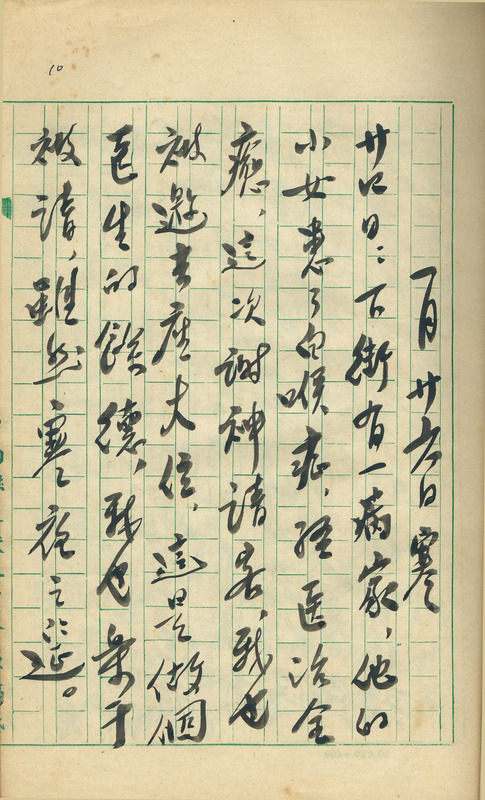 10
一月廿六日 寒
廿四日:下街有一病家,他的
小女患了白喉症,經医治全
癒、這次謝神請客,我也
被邀去座大位,這是做個
医生的餘德,我也樂于
被請,雖然寒夜之筵。